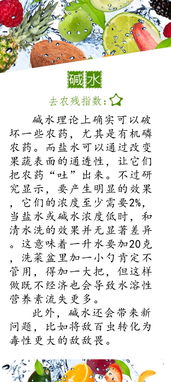 碱水
去农残指数：
碱水理论上确实可以破
坏一些农药，尤其是有机磷
农药。而盐水可以通过改变
果蔬表面的通透性，让它们
把农药“吐”出来。不过研
究显示，要产生明显的效果
，它们的浓度至少需要2%，
当盐水或碱水浓度低时，和
清水洗的效果并无显著差异
。这意味着一升水要加20克
，洗菜盆里加一小勺肯定不
管用，得加一大把，但这样
做既不经济也会导致水溶性
营养素流失更多。
此外，碱水还会带来新
问题，比如将敌百虫转化为
毒性更大的敌敌畏。